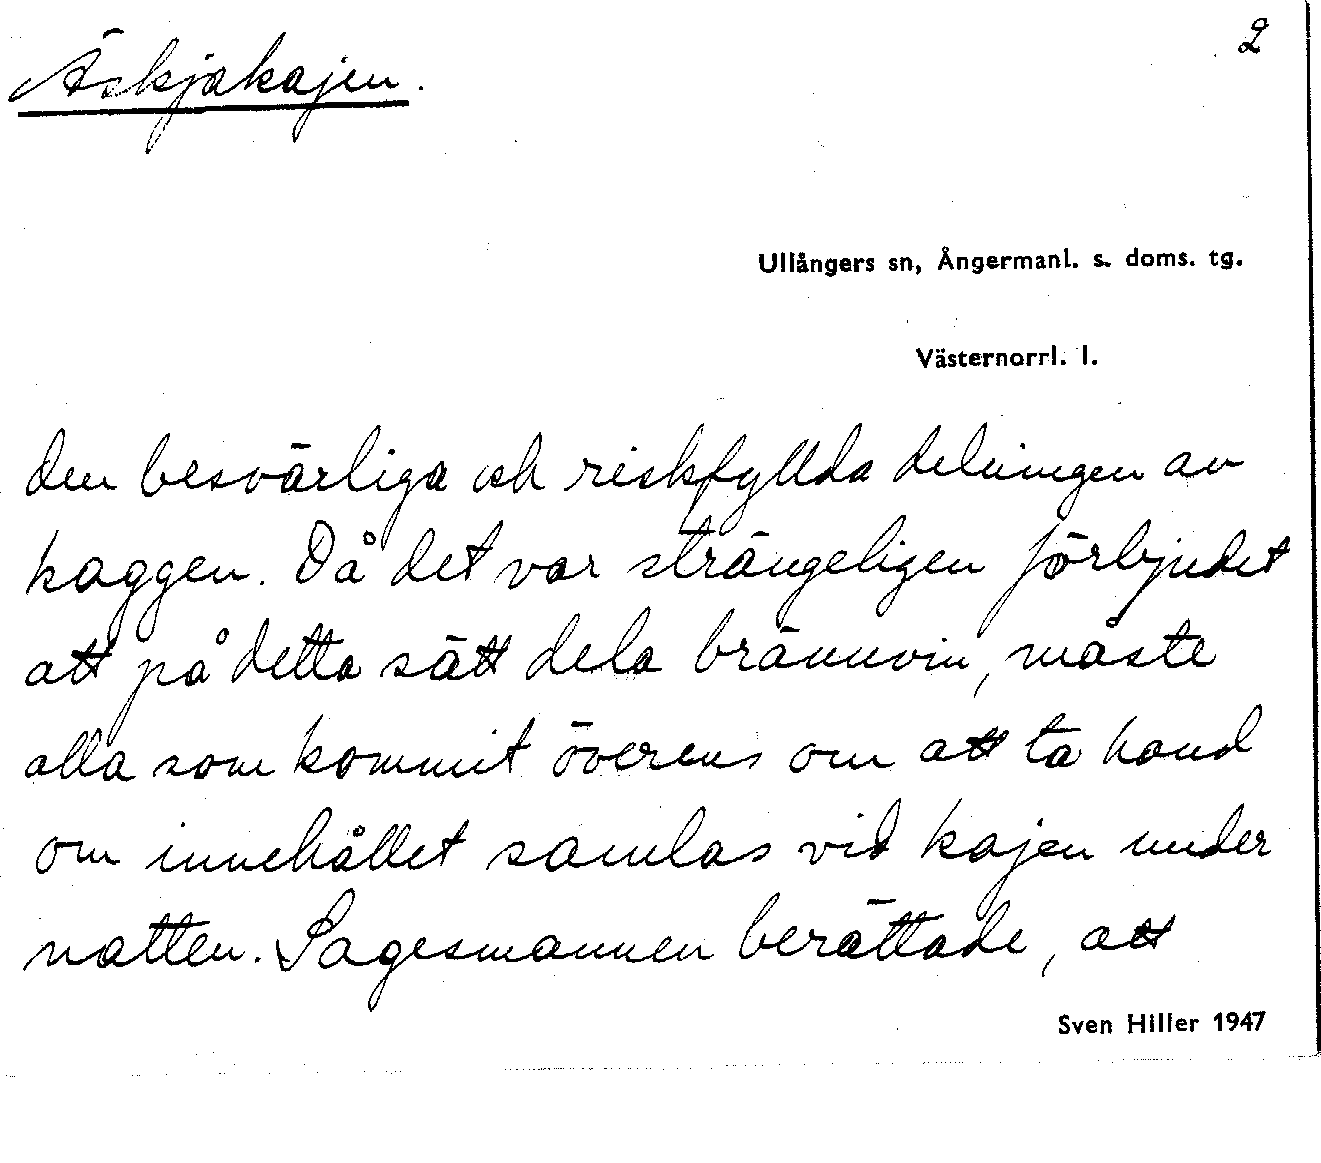 Äskjakajen.
2
Ullångers sn, Ångermanl. s. doms. tg.
Västernorrl. l.
den besvärliga och riskfyllda delningen av
kaggen. Då det var strängeligen förbjudet
att på detta sätt dela brännvin, måste
alla som kommit överens om att ta hand
om innehållet samlas vid kajen under
natten. Sagesmannen berättade, att
Sven Hiller 1947